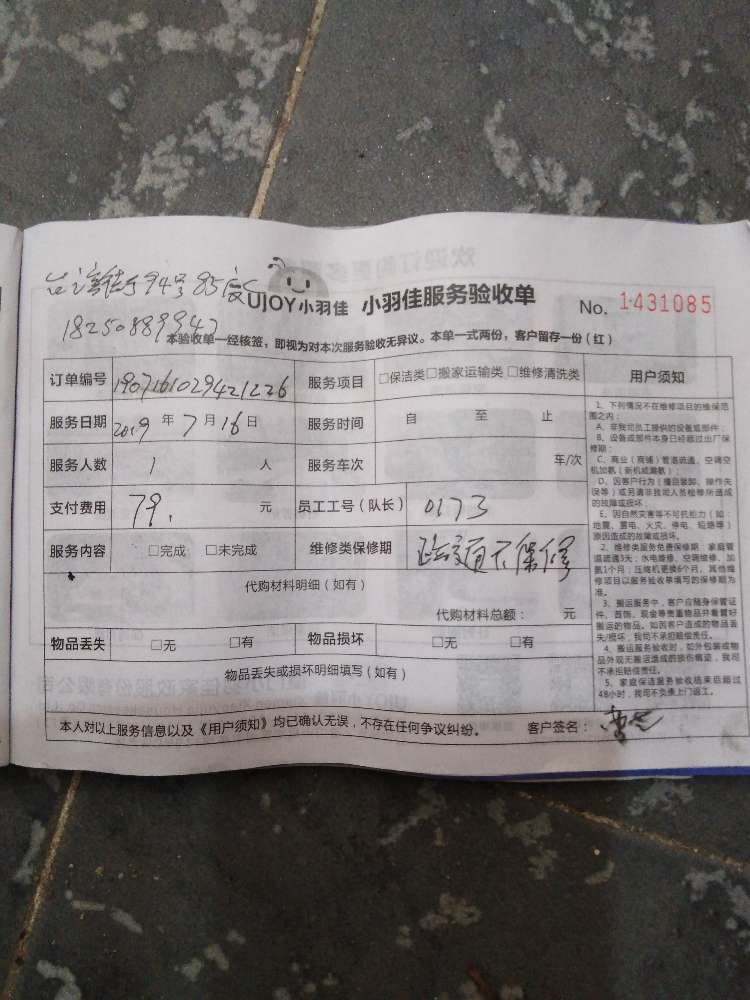 台湾街94号85度C
UJOY小羽佳 小羽佳服务验收单 No. 1431085
18250889947
本验收单一经核签，即视为对本次服务验收无异议。本单一式两份，客户留存一份（红）
订单编号 1907161029421226 服务项目 □保洁类□搬家运输类 □维修清洗类 用户须知
服务日期 2019 年 7 月 16 日 服务时间 自 至 止
服务人数 1 人 服务车次 车/次
支付费用 79. 元 员工工号（队长） 0173
服务内容 □完成 □未完成 维修类保修期 疏通不保修
代购材料明细（如有）
代购材料总额： 元
物品丢失 □无 □有 物品损坏 □无 □有
物品丢失或损坏明细填写（如有）
本人对以上服务信息以及《用户须知》均已确认无误，不存在任何争议纠纷。 客户签名：
1、下列情况不在维修项目的维保范
围之内：
A、非我司员工提供的设备或部件；
B、设备或部件本身已经超过出厂保
修期；
C、商业（商铺）管道疏通、空调空
机加氨（新机或漏氨）；
D、因客户行为（擅自装卸、操作失
误等）或另请非我司人员检修所造成
的故障或损坏；
E、因自然灾害等不可抗拒力（如：
地震、雷电、火灾、停电、短路等）
原因造成的故障或损坏。
2、维修类服务免费保修期：家庭管
道疏通3天；水电维修、空调维修、加
氨1个月；压缩机更换6个月，其他维
修项目以服务验收单填写的保修期为
准。
3、搬运服务中，客户应随身保管证
件、首饰、现金等贵重物品并看管好
搬运的物品。如因客户造成的物品丢
失/损坏，我司不承担赔偿责任。
4、搬运服务验收时，如外包装或物
品外观无搬运造成的损伤痕迹，我司
不承担赔偿责任。
5、家庭保洁服务验收结束后超过
48小时，我司不负责上门返工。